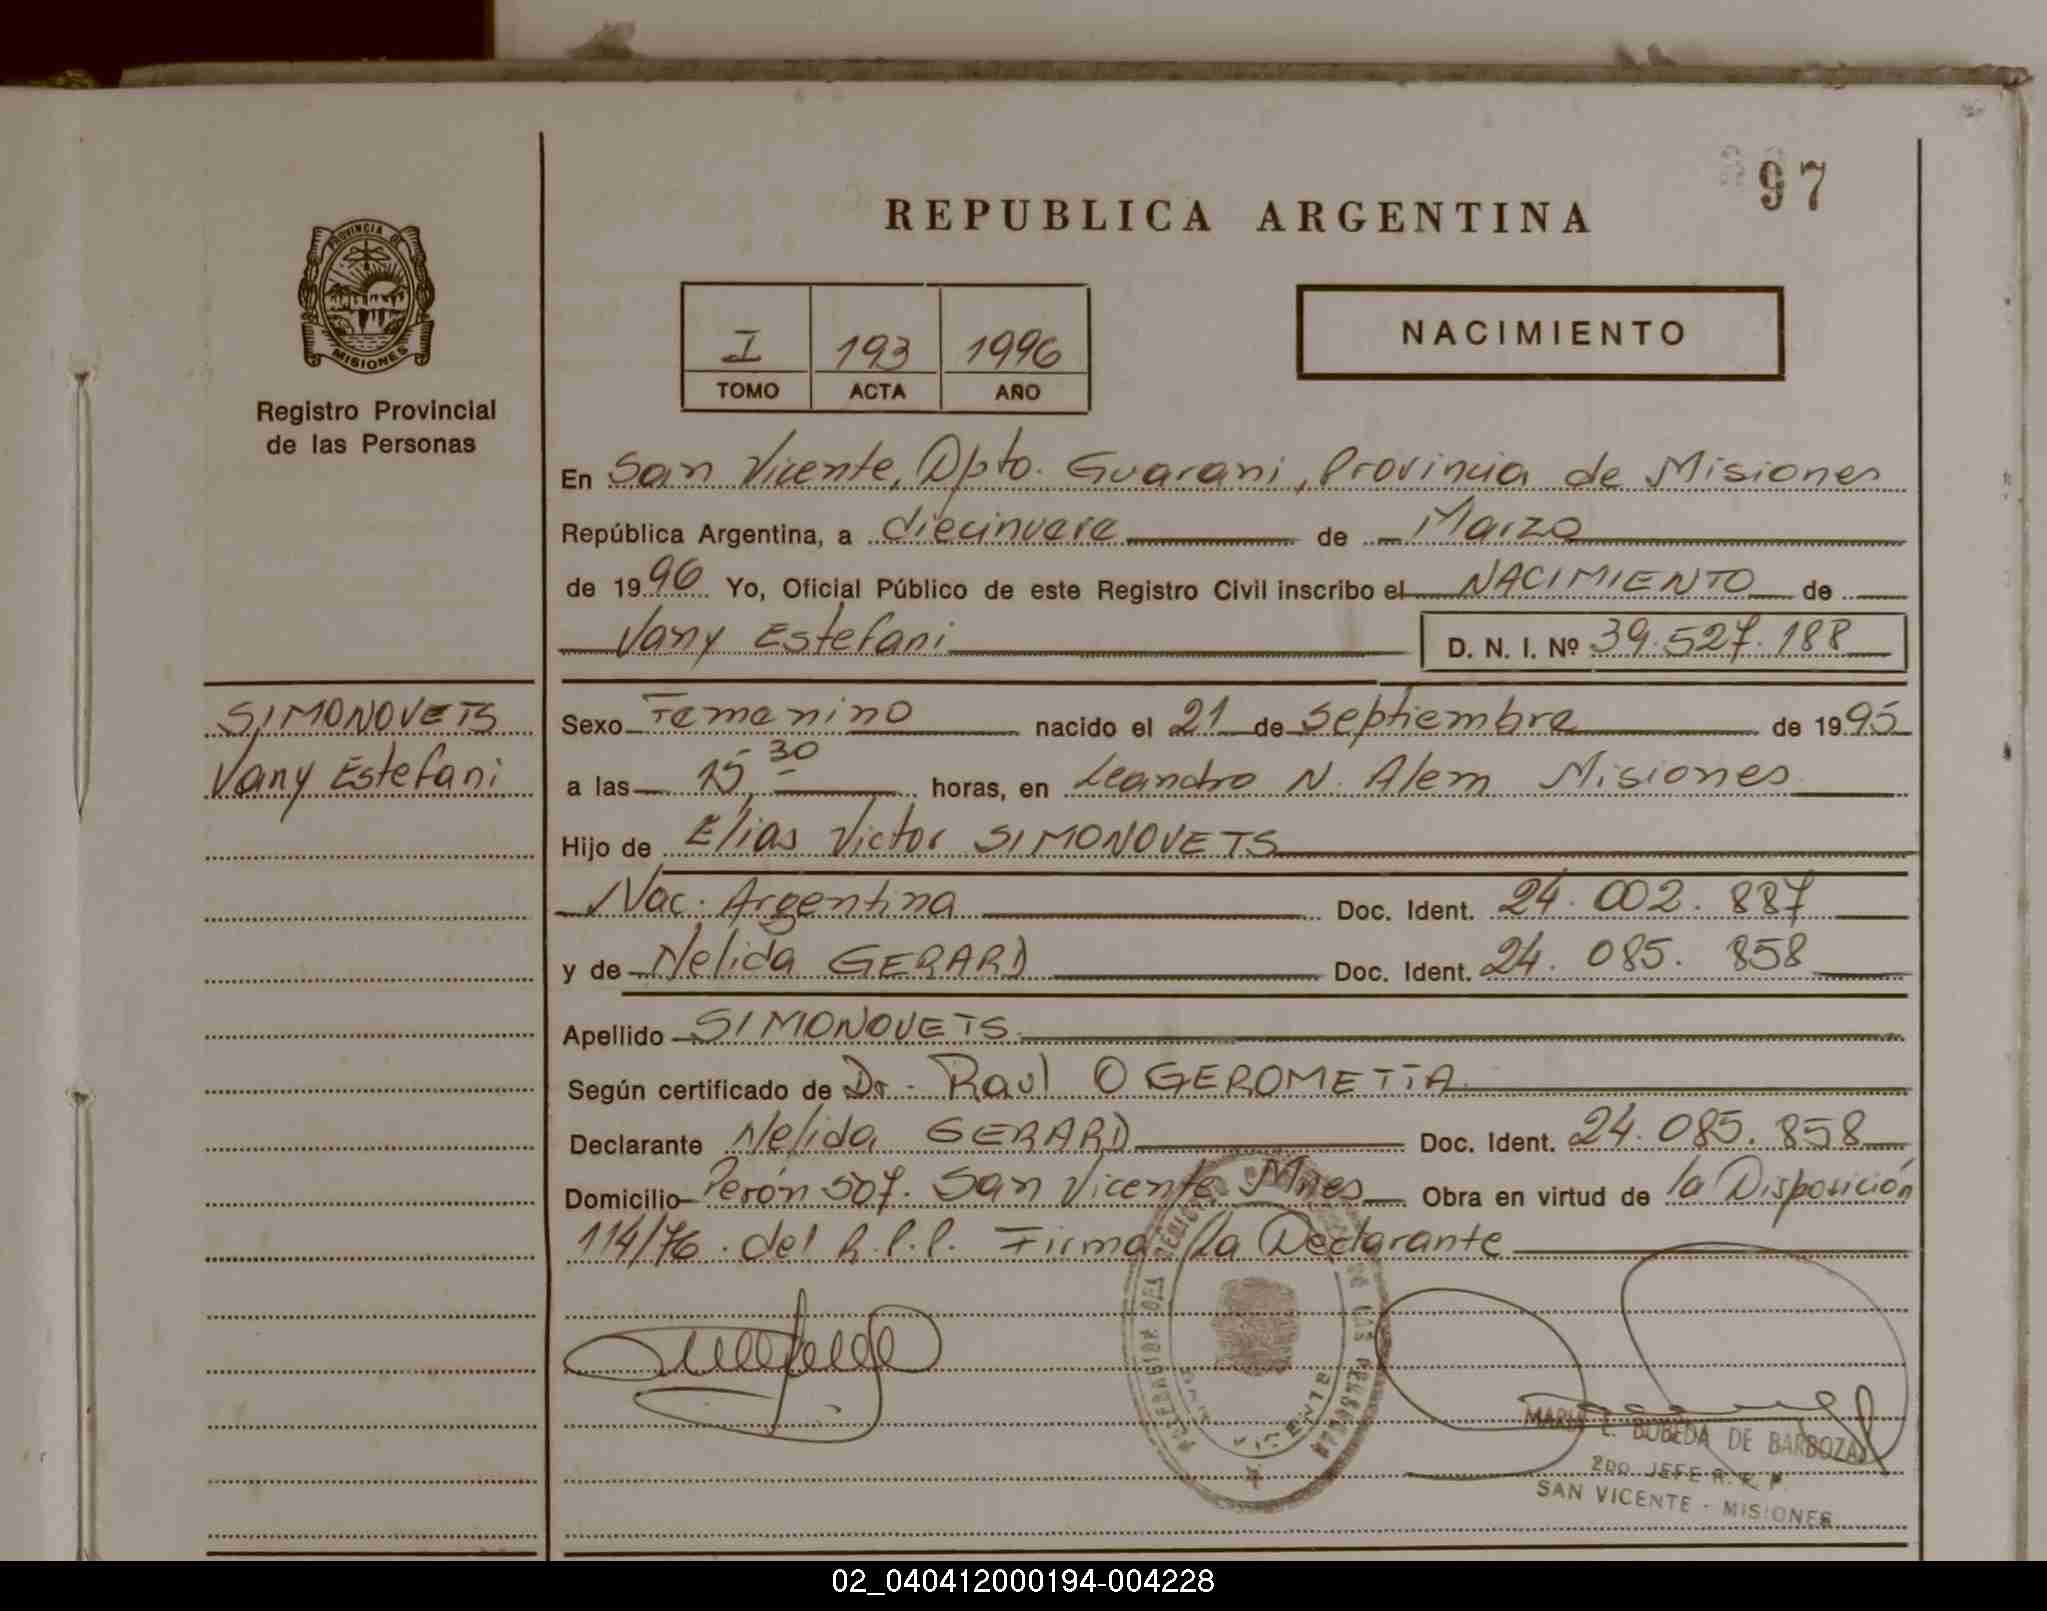 97
REPUBLICA ARGENTINA
PROVINCIA DE
MISIONES
Registro Provincial
de las Personas
I 193 1996
TOMO ACTA AÑO
NACIMIENTO
En San Vicente, Dpto. Guarani, Provincia de Misiones
República Argentina, a diecinueve de Marzo
de 1996 Yo, Oficial Público de este Registro Civil inscribo el NACIMIENTO de
Vany Estefani D. N. I. Nº 39.527.188
SIMONOVETS
Vany Estefani
Sexo Femenino nacido el 21 de Septiembre de 1995
a las 15,30 horas, en Leandro N. Alem Misiones
Hijo de Elias Victor SIMONOVETS
Nac. Argentina Doc. Ident. 24.002.887
y de Nelida GERARD Doc. Ident. 24.085.858
Apellido SIMONOVETS
Según certificado de Dr. Raul O GEROMETTA
Declarante Nelida GERARD Doc. Ident. 24.085.858
Domicilio Perón 507. San Vicente Mnes Obra en virtud de la Disposición
114/76. del R.P.P. Firma la Declarante
VICENTE
MARIA E. BOBEDA DE BARBOZA
2DO JEFE R. P. P.
SAN VICENTE - MISIONES
02_040412000194-004228